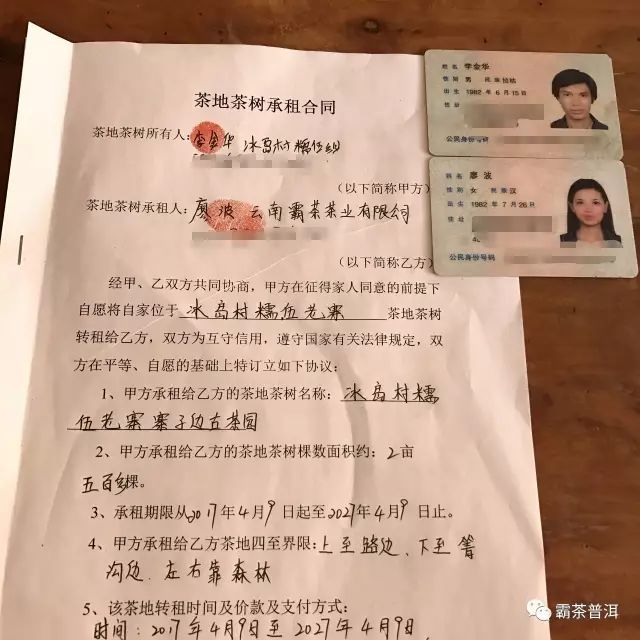 茶地茶树承租合同
茶地茶树所有人:李金华 冰岛村糯伍组
(以下简称甲方)
茶地茶树承租人:廖波 云南霸茶茶业有限公司
(以下简称乙方)
经甲、乙双方共同协商,甲方在征得家人同意的前提下
自愿将自家位于 冰岛村糯伍老寨 茶地茶树
转租给乙方,双方为互守信用,遵守国家有关法律规定,双
方在平等、自愿的基础上特订立如下协议:
1、甲方承租给乙方的茶地茶树名称:冰岛村糯
伍老寨寨子边古茶园
2、甲方承租给乙方的茶地茶树棵数面积约:2亩
五百多棵。
3、承租期限从2017年4月9日起至2027年4月9日止。
4、甲方承租给乙方茶地四至界限:上至路边、下至箐
沟边、左右靠森林
5、该茶地转租时间及价款及支付方式:
时间:2017年4月9日至2027年4月9日
姓名 李金华
性别 男 民族 拉祜
出生 1982 年 6 月 15 日
住址
公民身份号码
姓名 廖波
性别 女 民族 汉
出生 1982 年 7 月 26 日
住址
公民身份号码
霸茶普洱